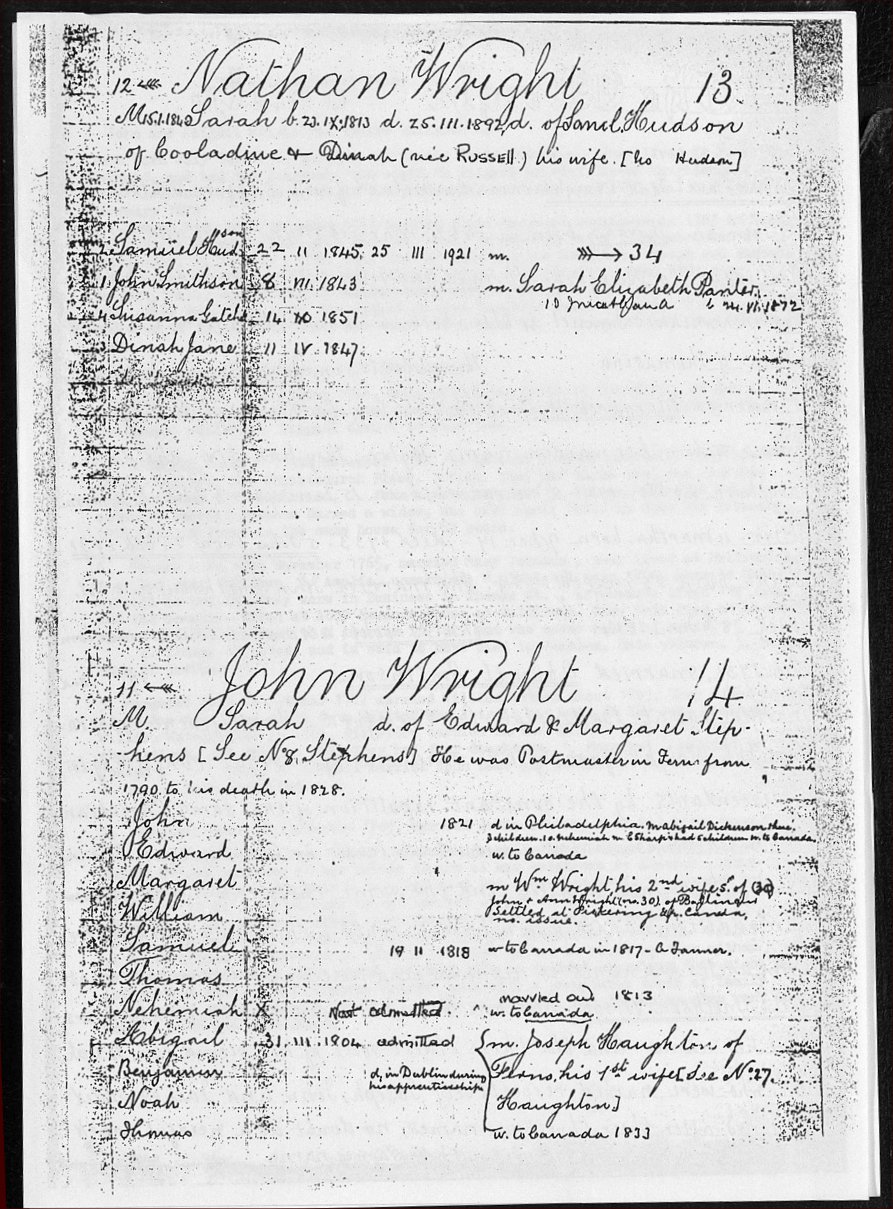 12 Nathan Wright 13
M 15.1.1840 Sarah b. 23.IX.1813 d. 25.III.1892 d. of Saml. Hudson
of Cooladine & Dinah (née RUSSELL) his wife. [ Hudson]
2 Samuel Hudson 22 11 1845 25 III 1921 m. → 34
1 John Smithson 8 VII 1843 m. Sarah Elizabeth Panter
b 24.VI.1872
4 Susanna 14 1851
3 Dinah Jane 11 IV 1847
11 John Wright 14
M Sarah d. of Edward & Margaret Step-
hens [See No 8, Stephens] He was Postmaster in Ferns from
1790 to his death in 1828.
John 1821 d in Philadelphia. m Abigail Dickenson
children w. to Canada
Edward w. to Canada
Margaret m Wm Wright, his 2nd wife s. of
John & Ann Wright (no. 30) of
William Settled at Pickering
no issue.
Samuel 19 11 1818 w to Canada in 1817 - a Farmer.
Thomas
Nehemiah X Not admitted married out 1813
w. to Canada
Abigail 31 III 1804 admitted m. Joseph Haughton of
Benjamin d, in Dublin during Ferns, his 1st wife [See No 27,
his apprenticeship
Noah Haughton]
Thomas w. to Canada 1833